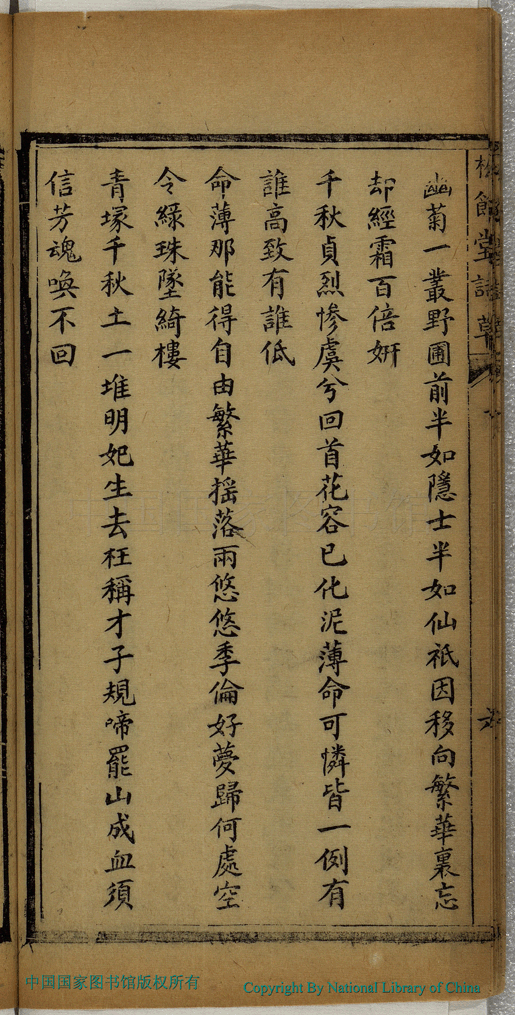 幽菊一叢野圃前半如隱士半如仙祇因移向繁華裏忘
却經霜百倍妍
千秋貞烈慘虞兮回首花容已化泥薄命可憐皆一例有
誰高致有誰低
命薄那能得自由繁華揺落兩悠悠季倫好夢歸何處空
令綠珠墜綺樓
青塚千秋土一堆明妃生去枉稱才子規啼罷山成血須
信芳魂喚不回
中国国家图书馆版权所有
Copyright By National Library of China